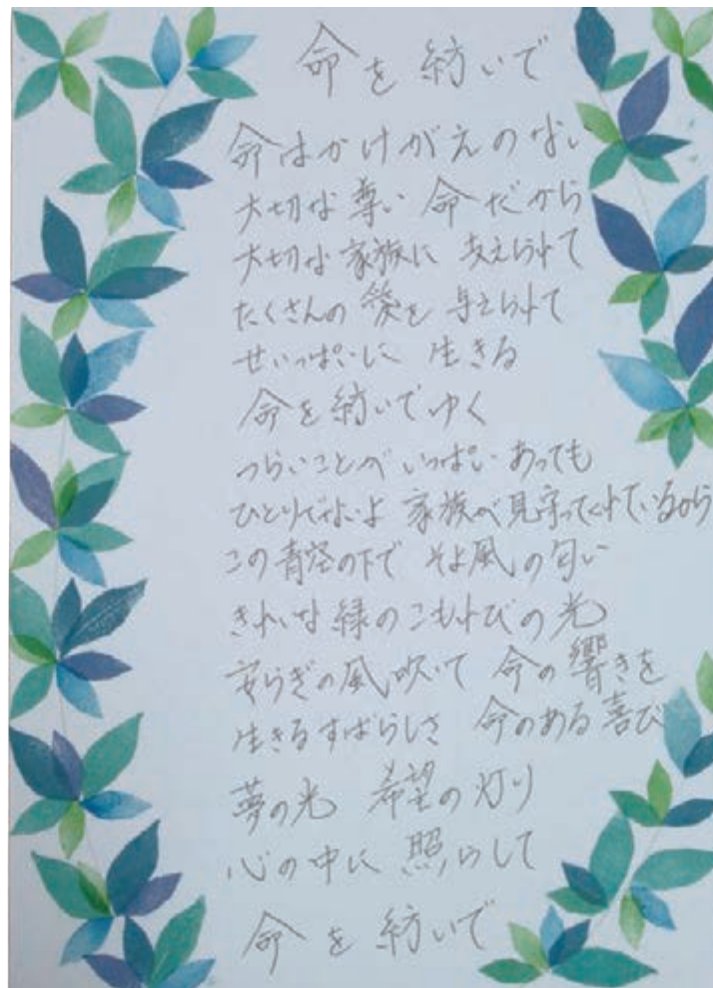 命を紡いで
命はかけがえのない
大切な尊い命だから
大切な家族に 支えられて
たくさんの愛を 与えられて
せいっぱいに 生きる
命を紡いでゆく
つらいことが いっぱい あっても
ひとりでないよ 家族が見守ってくれているから
この青空の下で そよ風の匂い
きれいな緑のこもれびの光
安らぎの風吹いて 命の響きを
生きるすばらしさ 命のある喜び
夢の光 希望の灯り
心の中に 照らして
命を紡いで